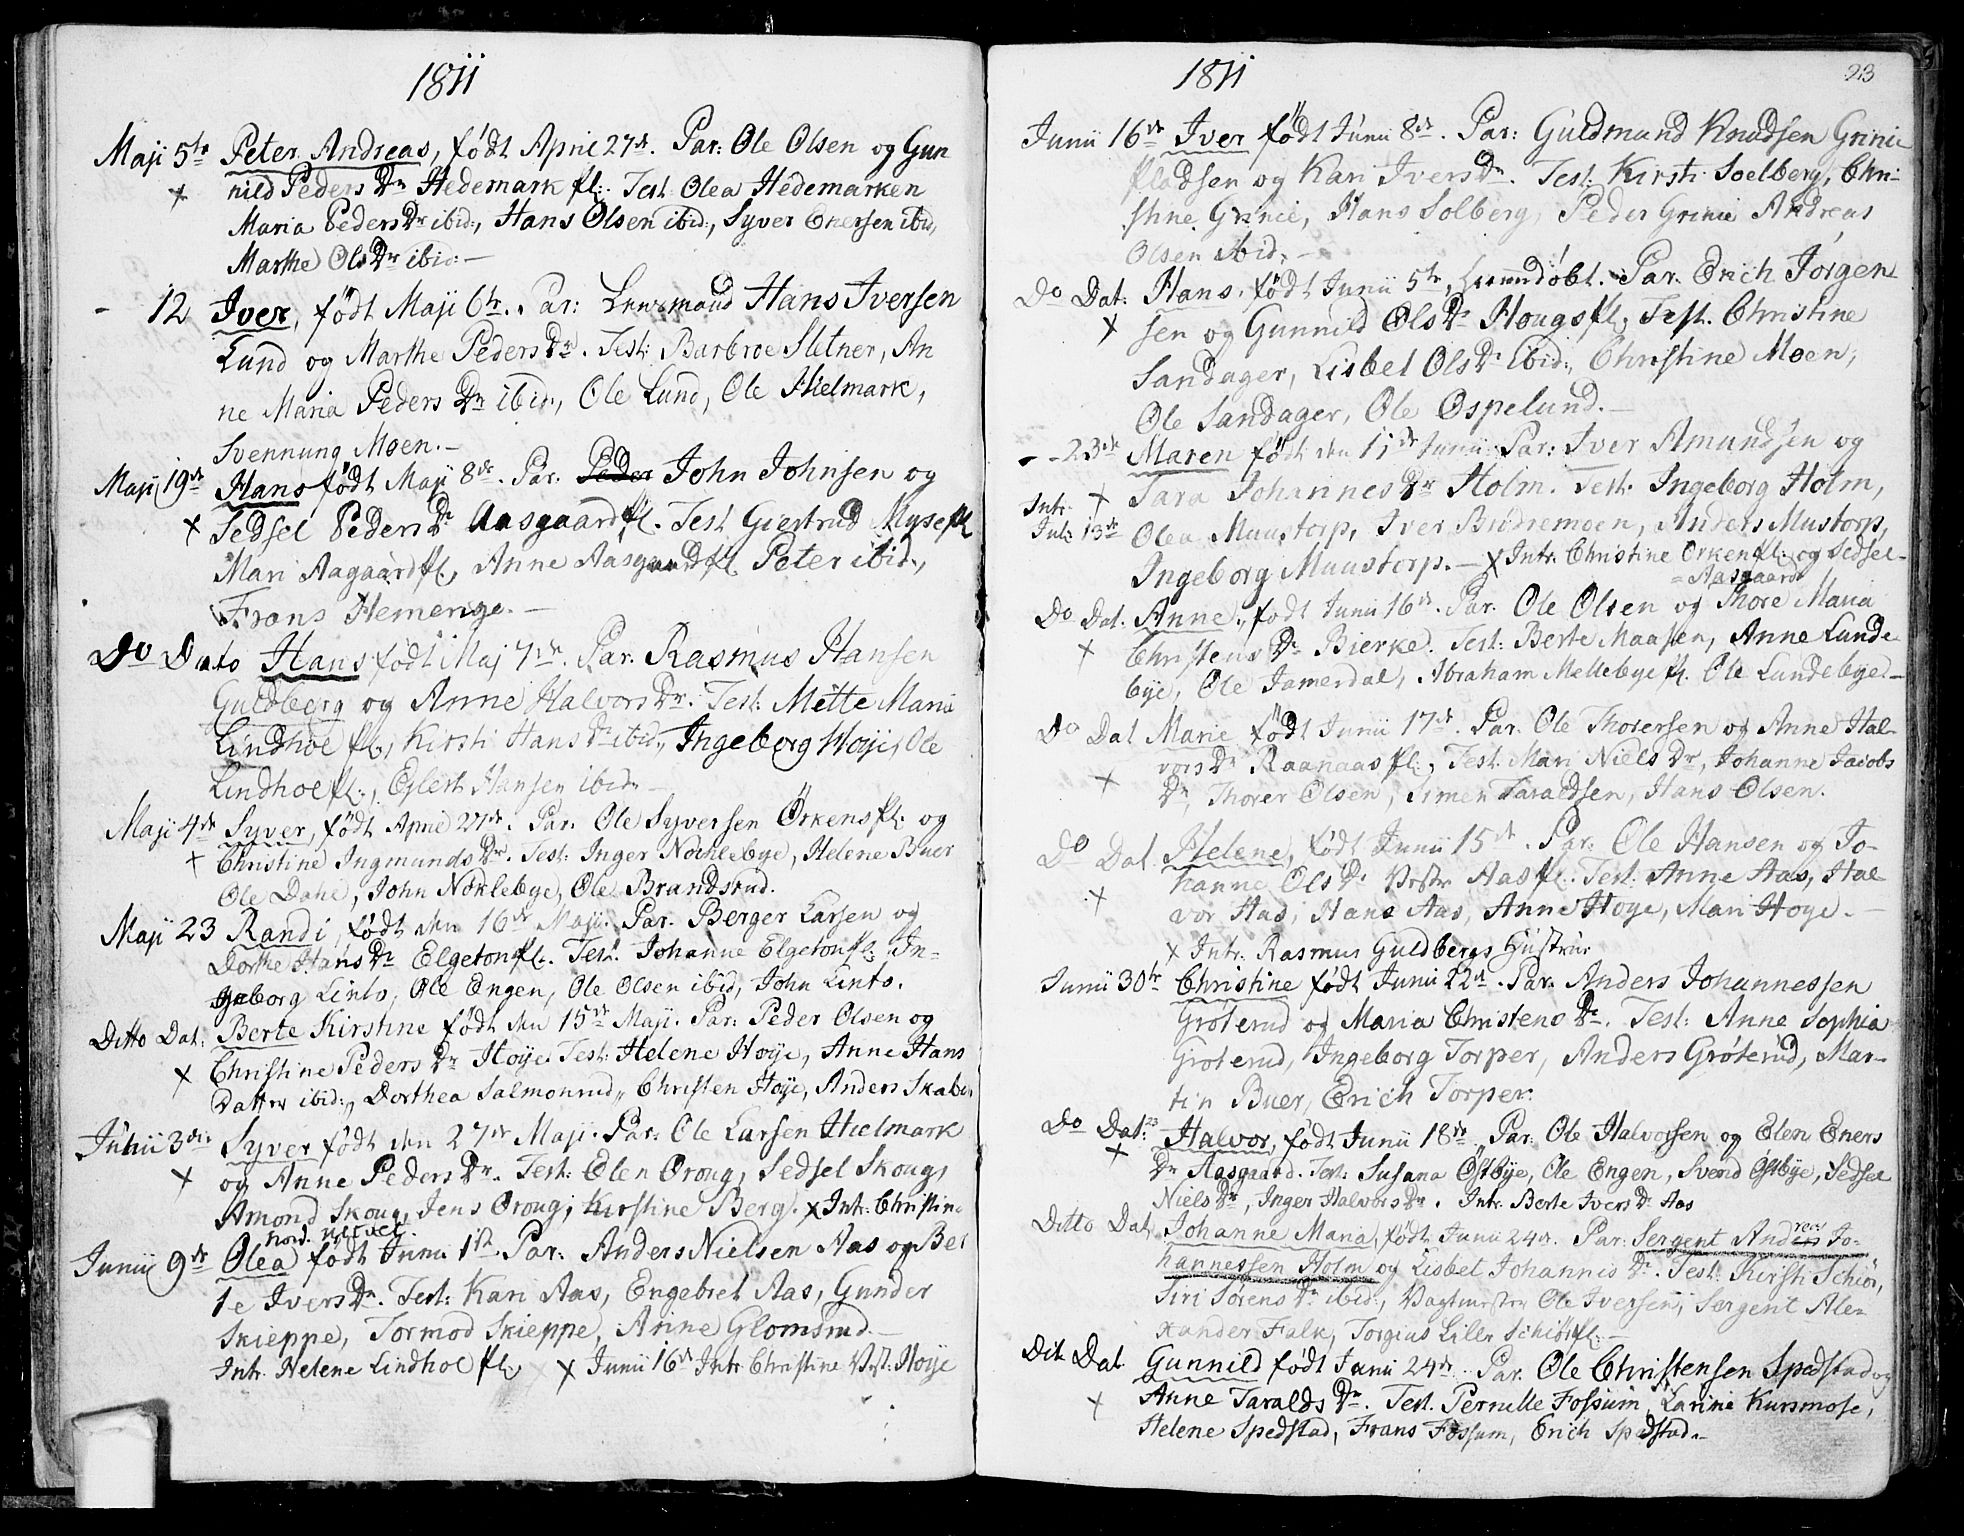 1811
Maji 5te Peter Andreas, født April 27de. Par: Ole Olsen og Gun
nild Peders Dr Hedemark pl:. Test: Olea Hedemarken
Maria Peders Dr ibid:, Hans Olsen ibid:, Syver Enersen ibid,
Marthe Ols Dr ibid:—
- 12 Iver, født Maji 6te. Par: Lensmand Hans Iversen
Lund og Marthe Peders Dr. Test: Barbroe Sletner, An
ne Maria Peders Dr ibid:, Ole Lund, Ole Hielmark,
Svennung Moen.—
Maji 19de Hans født Maji 8de. Par. Peder John Johnsen og
x Sedsel Peders Dr Aasgaard pl. Test Giertrud Myse pl
Mari Aagaard pl, Anne Aasgaard pl Peter ibid.,
Frans Hemenge.—
Do Dato Hans født Maj 7de. Par. Rasmus Hansen
Guldberg og Anne Halvors Dr. Test: Mette Maria
Lindhoe pl, Kirsti Hans Dr ibid, Ingeborg Høye, Ole
Lindhoe pl:, Eylert Hansen ibid—
Maji 4de Syver, født April 27de. Par. Ole Syversen Ørkens pl: og
x Christine Ingmunds Dr. Test: Inger Nochlebye, Helene Buer
Ole Dahl, John Nøklebye, Ole Brandsrud.
Maji 23 Randi, født den 16de Maji. Par. Berger Larsen og
Dorthe Hans Dr Elgeton pl. Test. Johanne Elgeton pl: In=
geborg Linto, Ole Engen, Ole Olsen ibid, John Linto.
Ditto Dat: Berte Kirstine født den 15de Maji. Par: Peder Olsen og
x Christine Peders Dr Høye. Test: Helene Høye, Anne Hans
Datter ibid:, Dorthea Salmonrud, Christen Høye, Anders Skabo
Junii 3die Syver født den 27de Maji. Par: Ole Larsen Hielmark
x og Anne Peders Dr. Test: Elen Oroug, Sedsel Skoug,
Amond Skoug, Jens Oroug, Kirstine Berg. x Intr: Christine
Junii 9de Olea født Junii 1ste Par: Anders Nielsen Aas og Ber
te Ivers Dr. Test: Kari Aas, Engebret Aas, Gunder
Skieppe, Tormod Skieppe, Anne Glomsrud.—
Intr. Helene Lindhoe pl, x Junii 16de Intr. Christine Vest: Høye
1811 23
Junii 16de Iver født Junii 8de. Par: Guldmund Knudsen Grinie
pladsen og Kari Ivers Dr. Test: Kirsti Soelberg, Chri-
stine Grinie, Hans Solberg, Peder Grinie Andreas
Olsen ibid.—
Do Dat: Hans, født Junii 5te, hiemdøbt. Par. Erich Jørgen
x sen og Gunnild Ols Dr Hougs pl, Test. Christine
Sandager, Lisbet Ols Dr ibid:, Christine Moen,
Ole Sandager, Ole Ospelund.—
- - 23de Maren født den 11de Junii. Par: Iver Amundsen og
x Tara Johannes Dr Holm. Test: Ingeborg Holm,
Intr.
Juli 13de Olea Muustorp, Iver Brødremoen, Anders Mustorp,
Ingeborg Muustorp.— x Intr: Christine Ørken pl: og Sedsel-
=Aasgaard
Do Dat. Anne, født Junii 16de. Par. Ole Olsen og Thore Maria
x Christens Dr Bierke. Test: Berte Maasen, Anne Lunde
bye, Ole Jamerdal, Abraham Mellebye pl. Ole Lundebye—
Do Dat Marie født Junii 17de. Par. Ole Thorersen og Anne Hal-
vors Dr Raanaas pl:, Test. Mari Niels Dr, Johanne Jacobs
x Dr, Thorer Olsen, Simen Taraldsen, Hans Olsen.
Do Dat Helene, født Junii 15de. Par: Ole Hansen og Jo-
x hanne Ols Dr Vestre Aas pl. Test: Anne Aas, Hal
vor Aas, Hans Aas, Anne Høye, Mari Høye.—
x Intr. Rasmus Guldbergs Hustrue
Junii 30te Christine født Junii 22de. Par. Anders Johannessen
Grøterud og Maria Christens Dr. Test: Anne Sophia
Grøterud, Ingeborg Torper, Anders Grøterud, Mar-
tin Buer, Erich Torper.
Do Dat: 23 Halvor, født Junii 18de. Par: Ole Halvorsen og Elen Eners
x Dr Aasgaard. Test: Susana Østbye, Ole Engen, Svend Østbye, Sedsel
Niels Dr, Inger Halvors Dr. Intr. Berte Ivers Dr Aas
Ditto Dat Johanne Maria, født Junii 24de. Par: Sergent Anders Jo-
hannessen Holm og Lisbet Johannis Dr. Test: Kirsti Schiør,
Siri Sørens Dr ibid:, Vagtmester Ole Iversen, Sergent Ale-
xander Falk, Torgius Lille Schiør pl:—
Dit Dat Gunnild født Junii 24de. Par. Ole Christensen Spedstad og
x Anne Taralds Dr. Test. Pernille Fossum, Larine Kursmose,
Helene Spedstad, Frans Fossum, Erich Spedstad.—